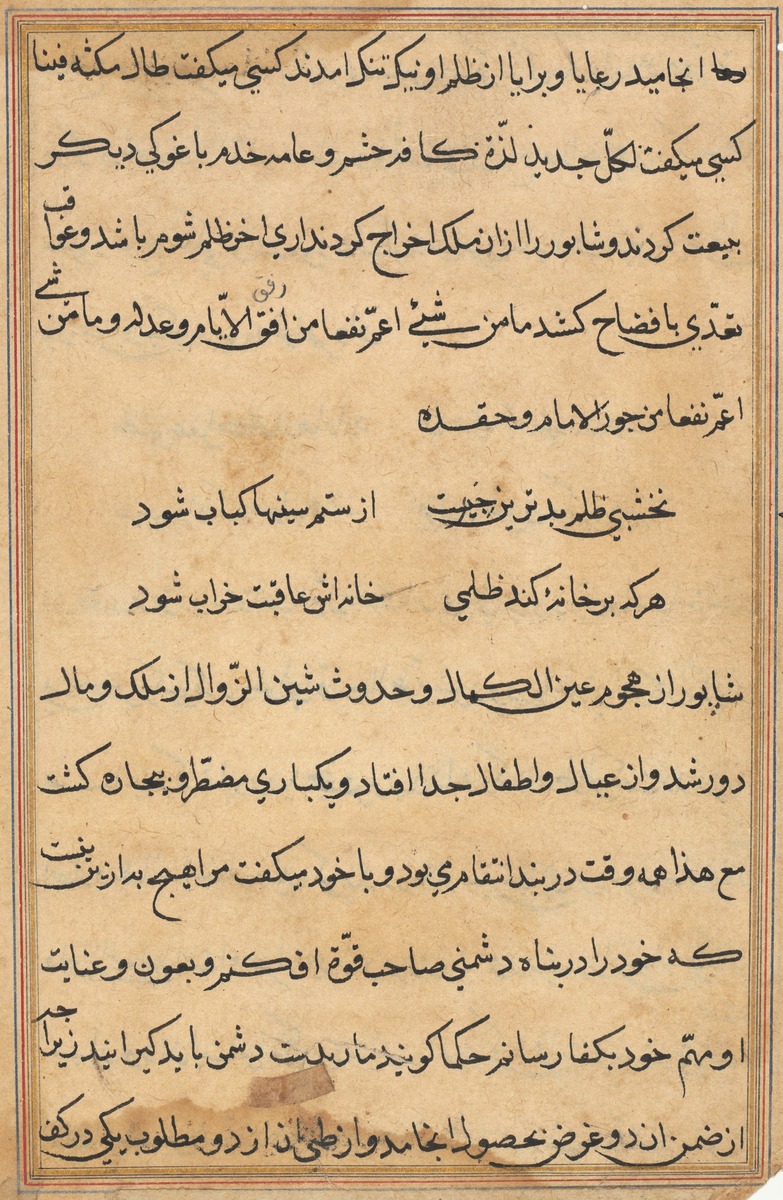 رها انجامید رعایا و برایا از ظلم او نیک تنک امدند کسی میکفت طال مکثه فینا
کسی میکفت لکلّ جدید لذّة کافه حشم و عامه خدم با غوکی دیکر
بیعت کردند و شابور را ازان ملک اخراج کردند اری اخر ظلم شوم باشد و عواقب
تعدّی بافضاح کشد ما من شیئ اعمّ نفعا من افق رفق الایّام و عدله و ما من شی
اعمّ نفعا من جور الامام و حقده
نخشبی ظلم بدترین چیزیست از ستم سینها کباب شود
هرکه بر خانهٔ کند ظلمی خانه اش عاقبت خراب شود
شاپور از هجوم عین الکمال و حدوث شین الزّوال از ملک و مال
دور شد و از عیال و اطفال جدا افتاد و یکباری مضطّر و بیچاره کشت
مع هذا همه وقت در بند انتقام می بود و با خود میکفت مرا هیچ به ازین نیست
که خود را در پناه دشمنی صاحب قوّة افکنم و بعون و عنایت
او مهمّ خود بکفا رسانم حکما کویند مار بدست دشمن باید کیرانید زیراچه
از ضمن ان دو غرض بحصول انجامد و از طی ان از دو مطلوب یکی در کف